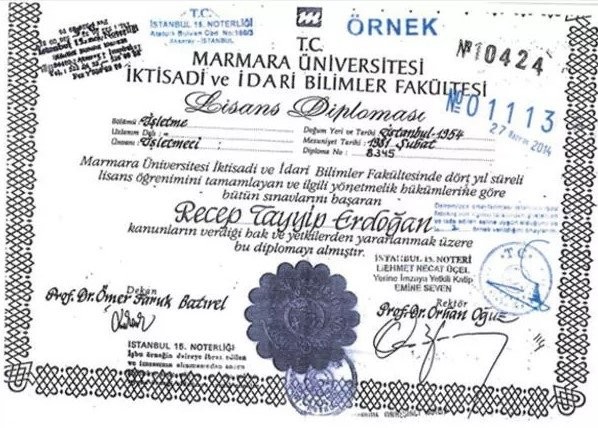 T.C.
İSTANBUL 15. NOTERLİĞİ
Atatürk Bulvarı Cad. No:160/3
Aksaray - İSTANBUL
ÖRNEK
№10424
T.C.
MARMARA ÜNİVERSİTESİ
İKTİSADİ ve İDARİ BİLİMLER FAKÜLTESİ
Lisans Diploması
№01113
27 2014
Bölümü : İşletme
Doğum Yeri ve Tarihi : İstanbul-1954
Uzmanlık Dalı : -
Mezuniyet Tarihi : 1981 Şubat
Ünvanı : İşletmeci
Diploma No : 8345
Marmara Üniversitesi İktisadi ve İdari Bilimler Fakültesinde dört yıl süreli
lisans öğrenimini tamamlayan ve ilgili yönetmelik hükümlerine göre
bütün sınavlarını başaran
Recep Tayyip Erdoğan
kanunların verdiği hak ve yetkilerden yararlanmak üzere
bu diplomayı almıştır.
İSTANBUL 15. NOTERİ
MEHMET NECAT ÜÇEL
Yerine İmzaya Yetkili Katip
EMİNE SEVEN
T.C.
Dekan
Prof. Dr. Ömer Faruk Batırel
Rektör
Prof. Dr. Orhan Oğuz
İSTANBUL 15. NOTERLİĞİ
İşbu örneğin daireye ibraz edilen